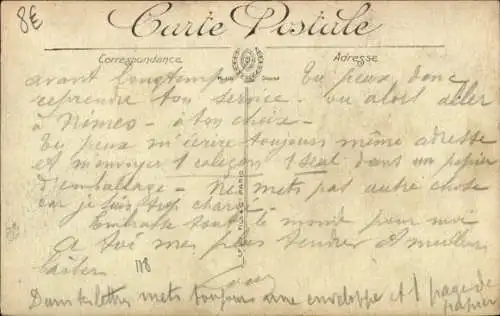 8€
Carte Postale
Correspondance
Adresse
avant longtemps Tu peux donc
reprendre ton service. ou alors aller
à Nîmes - à ton choix -
Tu peux m'écrire toujours même adresse
et m'envoyer 1 caleçon 1 seul dans un papier
d'emballage - Ne mets pas autre chose
car je suis trop chargé.
Embrasse tout le monde pour moi
A toi mes plus tendres et meilleurs
baisers
118
Dans tes lettres mets toujours une enveloppe et 1 page de
papier